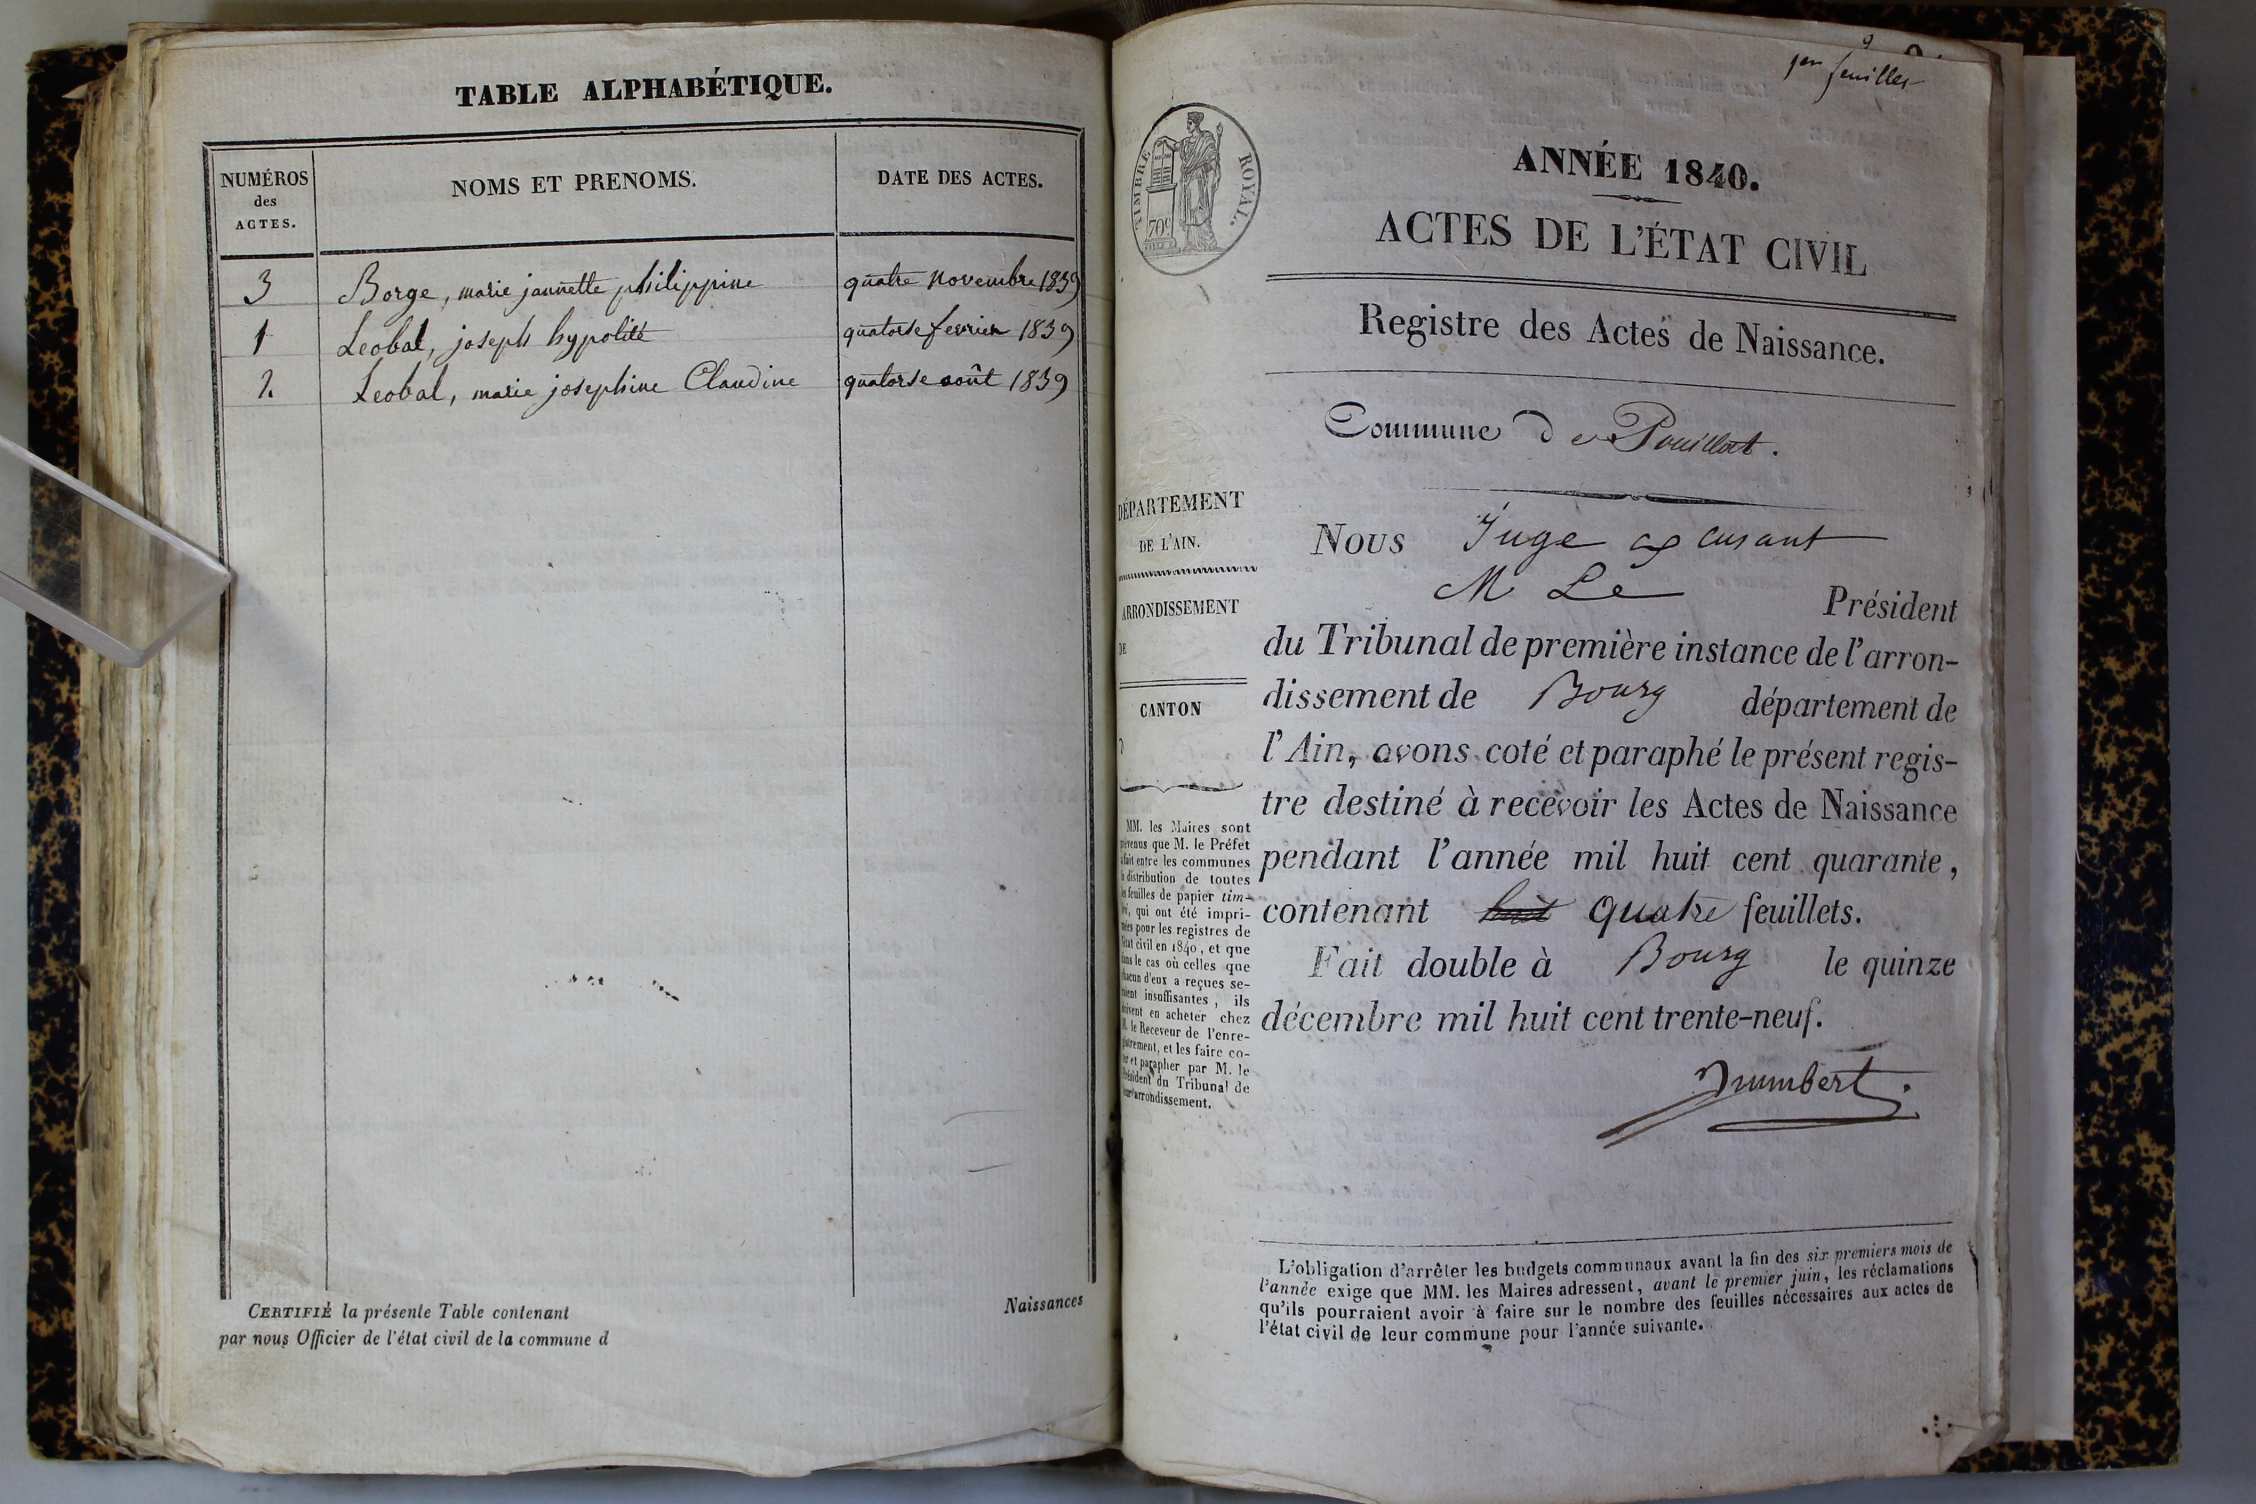 TABLE ALPHABÉTIQUE.
NUMÉROS
des
ACTES.
NOMS ET PRENOMS.
DATE DES ACTES.
3 Borge, marie jannette philippine quatre novembre 1839
1 Leobal, joseph hypolite quatorse fevrier 1839
2. Leobal, marie josephine Claudine quatorse août 1839
CERTIFIÉ la présente Table contenant
par nous Officier de l'état civil de la commune d
Naissances
1er feuillet
TIMBRE ROYAL.
70c
ANNÉE 1840.
ACTES DE L'ÉTAT CIVIL
Registre des Actes de Naissance.
Commune de Pouillat.
DÉPARTEMENT
DE L'AIN.
ARRONDISSEMENT
DE
CANTON
D
MM. les Maires sont
prévenus que M. le Préfet
a fait entre les communes
la distribution de toutes
les feuilles de papier tim-
bré, qui ont été impri-
mées pour les registres de
l'état civil en 1840, et que
dans le cas où celles que
chacun d'eux a reçues se-
raient insuffisantes, ils
doivent en acheter chez
M. le Receveur de l'enre-
gistrement, et les faire co-
ter et parapher par M. le
Président du Tribunal de
leur arrondissement.
Nous Juge
M Le Président
du Tribunal de première instance de l'arron-
dissement de Bourg département de
l'Ain, avons coté et paraphé le présent regis-
tre destiné à recevoir les Actes de Naissance
pendant l'année mil huit cent quarante,
contenant huit quatre feuillets.
Fait double à Bourg le quinze
décembre mil huit cent trente-neuf.
L'obligation d'arrêter les budgets communaux avant la fin des six premiers mois de
l'année exige que MM. les Maires adressent, avant le premier juin, les réclamations
qu'ils pourraient avoir à faire sur le nombre des feuilles nécessaires aux actes de
l'état civil de leur commune pour l'année suivante.